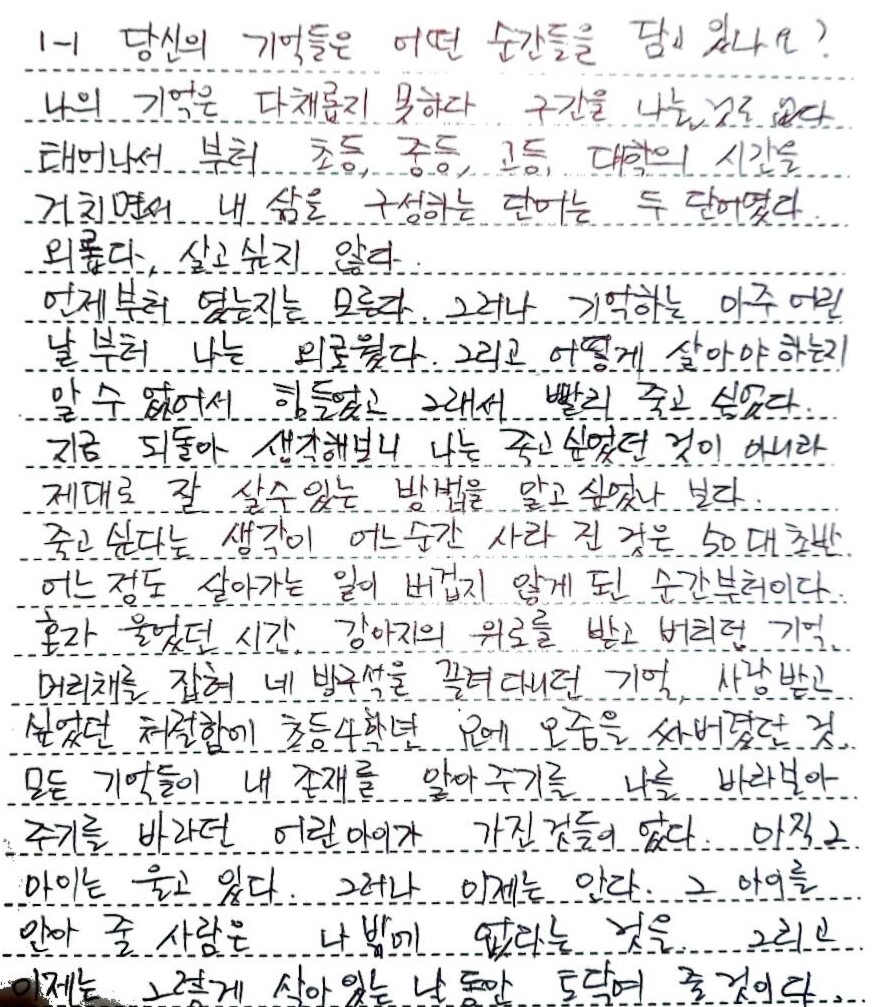 1-1 당신의 기억들은 어떤 순간들을 담고 있나요?
나의 기억은 다채롭지 못하다 구간을 나눌 것도 없다
태어나서 부터 초등, 중등, 고등, 대학의 시간을
거치면서 내 삶을 구성하는 단어는 두 단어였다.
외롭다, 살고싶지 않다.
언제부터 였는지는 모른다. 그러나 기억하는 아주 어린
날부터 나는 외로웠다. 그리고 어떻게 살아야 하는지
알 수 없어서 힘들었고 그래서 빨리 죽고 싶었다.
지금 되돌아 생각해보니 나는 죽고싶었던 것이 아니라
제대로 잘 살수있는 방법을 알고싶었나 보다.
죽고싶다는 생각이 어느순간 사라 진 것은 50대초반.
어느정도 살아가는 일이 버겁지 않게 된 순간부터이다.
혼자 울었던 시간, 강아지의 위로를 받고 버티던 기억,
머리채를 잡혀 네 방구석을 끌려다니던 기억, 사랑받고
싶었던 처절함에 초등4학년 요에 오줌을 싸버렸던 것.
모든 기억들이 내 존재를 알아주기를 나를 바라보아
주기를 바라던 어린아이가 가진것들이 었다. 아직 그
아이는 울고 있다. 그러나 이제는 안다. 그 아이를
안아 줄 사람은 나 밖에 없다는 것을. 그리고
이제는 그렇게 살아있는 날 동안 토닥여 줄것이다..